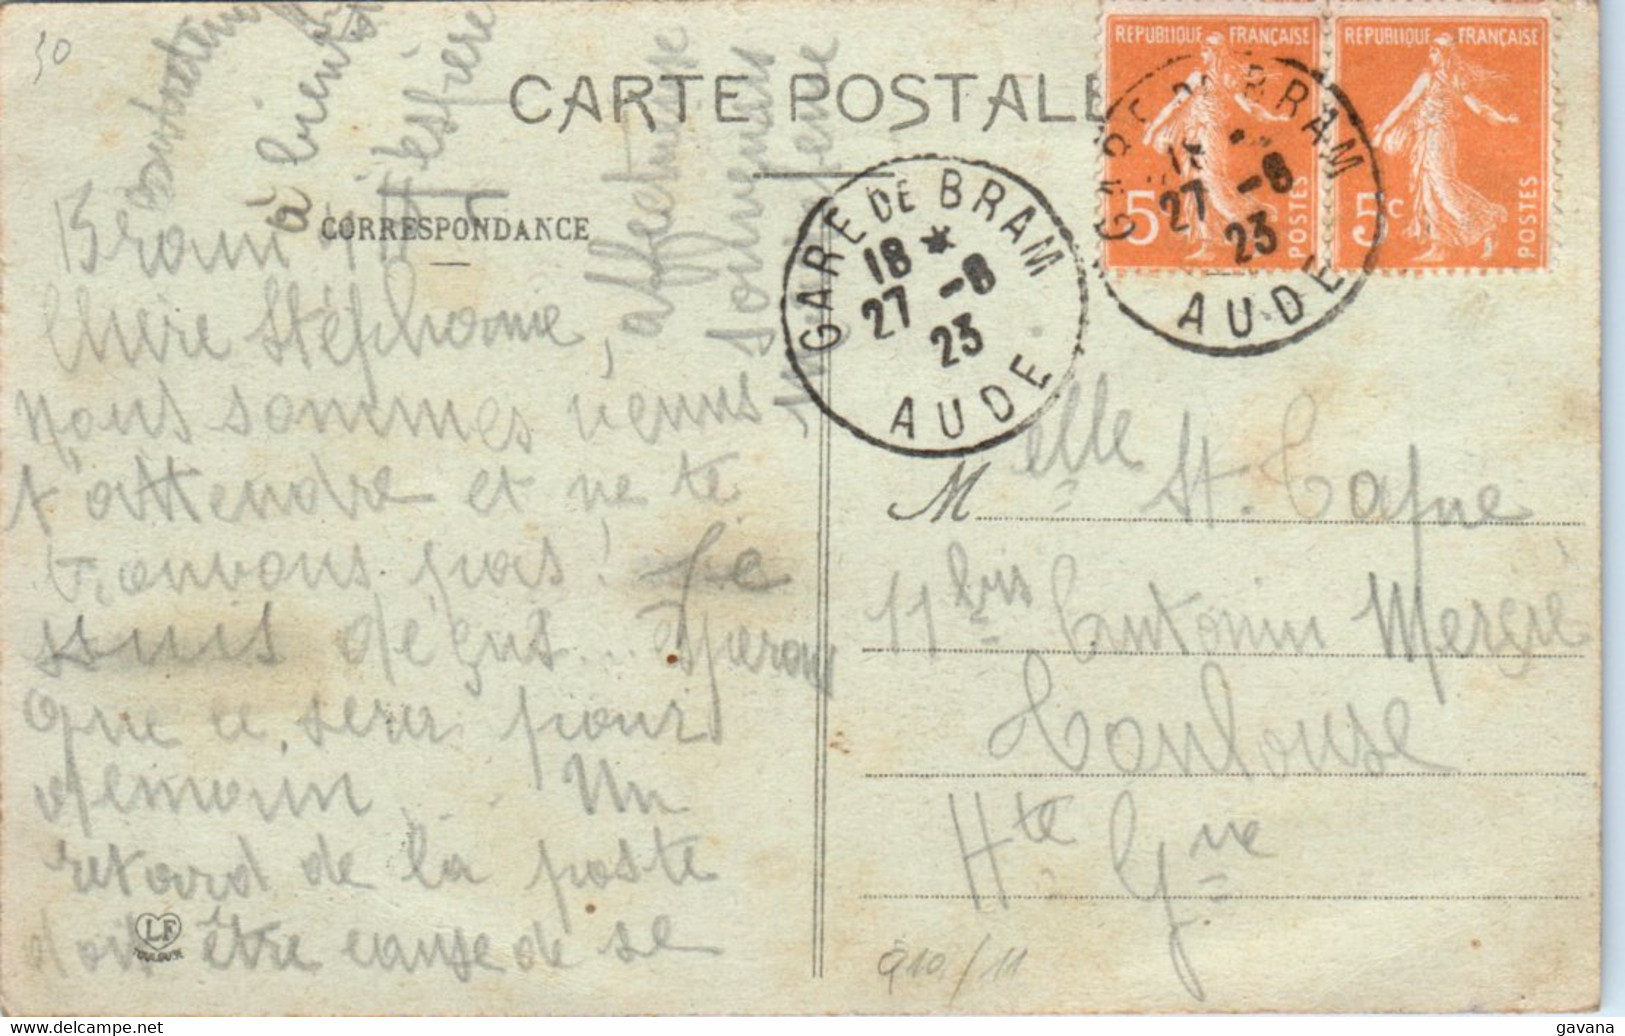 30
CARTE POSTALE
CORRESPONDANCE
Bram
Chère Stéphanie,
nous sommes venus
t'attendre et ne te
trouvons pas! Je
suis déçus... Espérons
que ce sera pour
demain. Un
retard de la poste
doit être cause de se
contretemps
à bientôt
j'espère
affectueuse
souvenirs
LF
TOULOUSE
REPUBLIQUE FRANÇAISE
5c
POSTES
REPUBLIQUE FRANÇAISE
5c
POSTES
GARE DE BRAM
18 *
27 -8
23
AUDE
GARE DE BRAM
18 *
27 -8
23
AUDE
Melle St. Cafne
11 bis Antonin Mercié
Toulouse
Hte Gne
910/11
gavana
delcampe.net